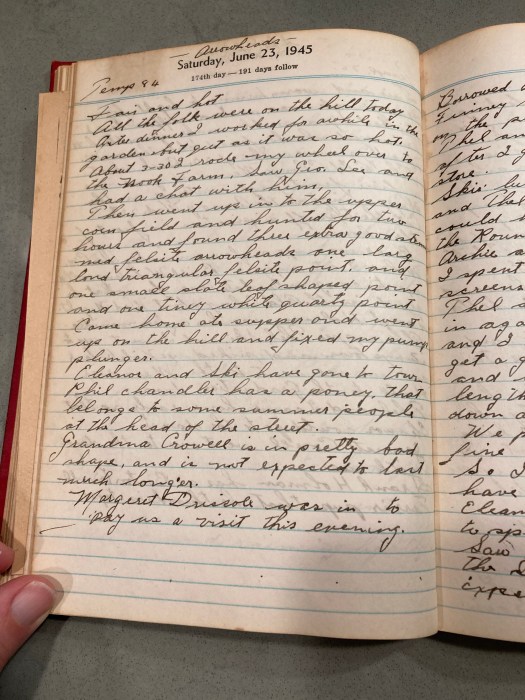 - Arrowheads -
Saturday, June 23, 1945
Temp 84
174th day — 191 days follow
Fair and hot
All the folk were on the hill today
After dinner I worked for awhile in the
garden but quit as it was so hot.
About 2-30 I rode my wheel over to
the Nook Farm, saw Geo. Lee and
had a chat with him,
Then went up in to the upper
corn field and hunted for two
hours and found three extra good stem
med felsite arrowheads one larg
lond triangular felsite point, and
one small slate leaf shaped point
and one tiney white quartz point
Came home ate supper and went
up on the hill and fixed my pump
plunger.
Eleanor and Ski have gone to town
Phil chandler has a poney, that
belongs to some summer people
at the head of the street.
Grandma Crowell is in pretty bad
shape, and is not expected to last
much longer.
Margeret Driscole was in to
pay us a visit this evening.
Borrowed
Finney
on the
Phel an
after I g
store.
Skis
and Phel
could
the Roun
Archie a
I spent
screens
Phel
in aga
and I
get a g
and
length
down a
We p
fine
So I
have
Elean
to
Saw
the
expe